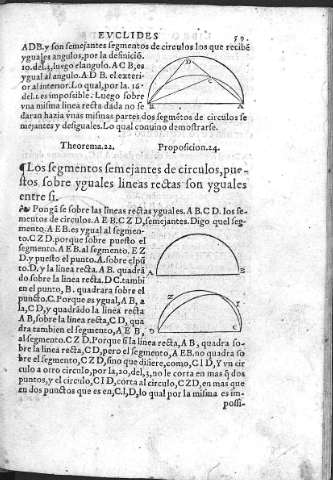 EVCLIDES 59.
ADB. y son semejantes segmentos de circulos los que recibē
yguales angulos, por la definiciō.
10. del. 3, luego el angulo. A C B, es
ygual al angulo. A D B. el exteri-
or al interior. Lo qual, por la. 16.
del. 1. es impossible. Luego sobre
vna misma linea recta dada no se
daran hazia vnas mismas partes dos segmētos de circulos se
mejantes y desiguales. Lo qual conuino demostrarse.
D
C
B
A
Theorema. 22. Proposicion. 24.
¶Los segmentos semejantes de circulos, pue-
stos sobre yguales lineas rectas son yguales
entre si.
Pongā se sobre las lineas rectas yguales. A B. C D. los se-
mentos de circulos. A E B. C Z D, semejantes. Digo quel seg-
mento. A E B. es ygual al segmen-
to. C Z D. porque sobre puesto el
segmento. A E B. al segmento. E Z
D. y puesto el punto. A. sobre el pū
to. D. y la linea recta. A B. quadrā
do sobre la linea recta. D C. tambi
en el punto, B. quadrara sobre el
puncto. C. Porque es ygual, A B, a
la, C D, y quadrādo la linea recta
A B, sobre la linea recta, C D, qua
dra tambien el segmento, A E B,
al segmento. C Z D. Porque si la linea recta, A B, quadra so-
bre la linea recta, C D, pero el segmento, A E B. no quadra so
bre el segmento, C Z D, sino que difiere, como, C I D, Y vn cir
culo a otro circulo, por la, 10, del, 3, no le corta en mas q̄ dos
puntos, y el circulo, C I D, corta al circulo, C Z D, en mas que
en dos punctos que es en, C. I, D, lo qual por la misma es im-
possi-
A
B
Z
I
D
C